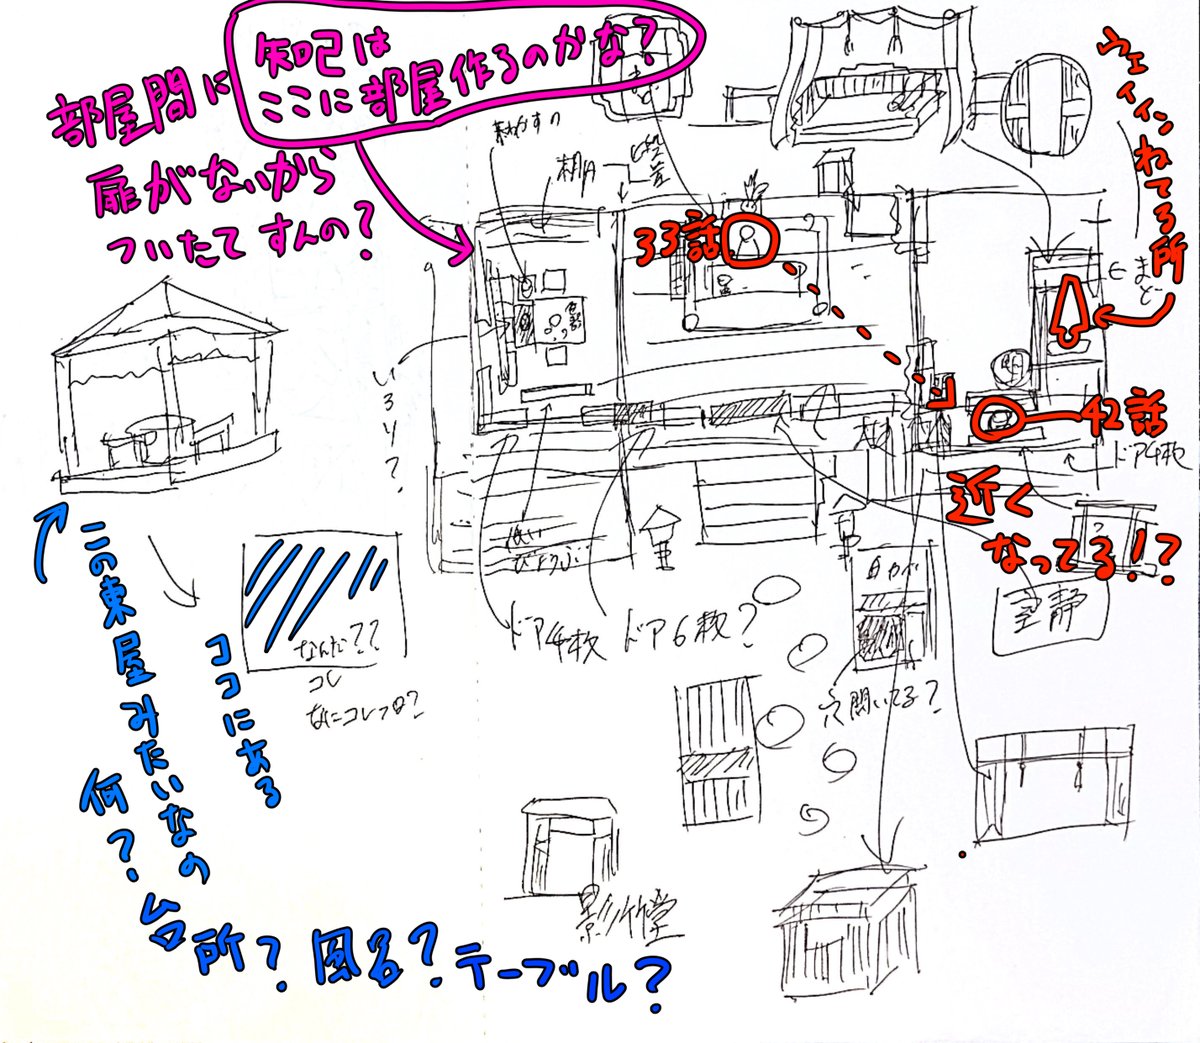 知己は
ここに部屋作るのかな？
部屋間に
扉がないから
ついたてすんの？
棚
段差
33話
ウェイインねてる所
まど
42話
近く
なってる！？
ドア4枚
いろり？
低い
びょうぶ
ドア4枚
ドア6枚？
静室
なんだ？？
コレ
なにコレフロ？
ココにある
この東屋みたいなの
何？
台所？風呂？テーブル？